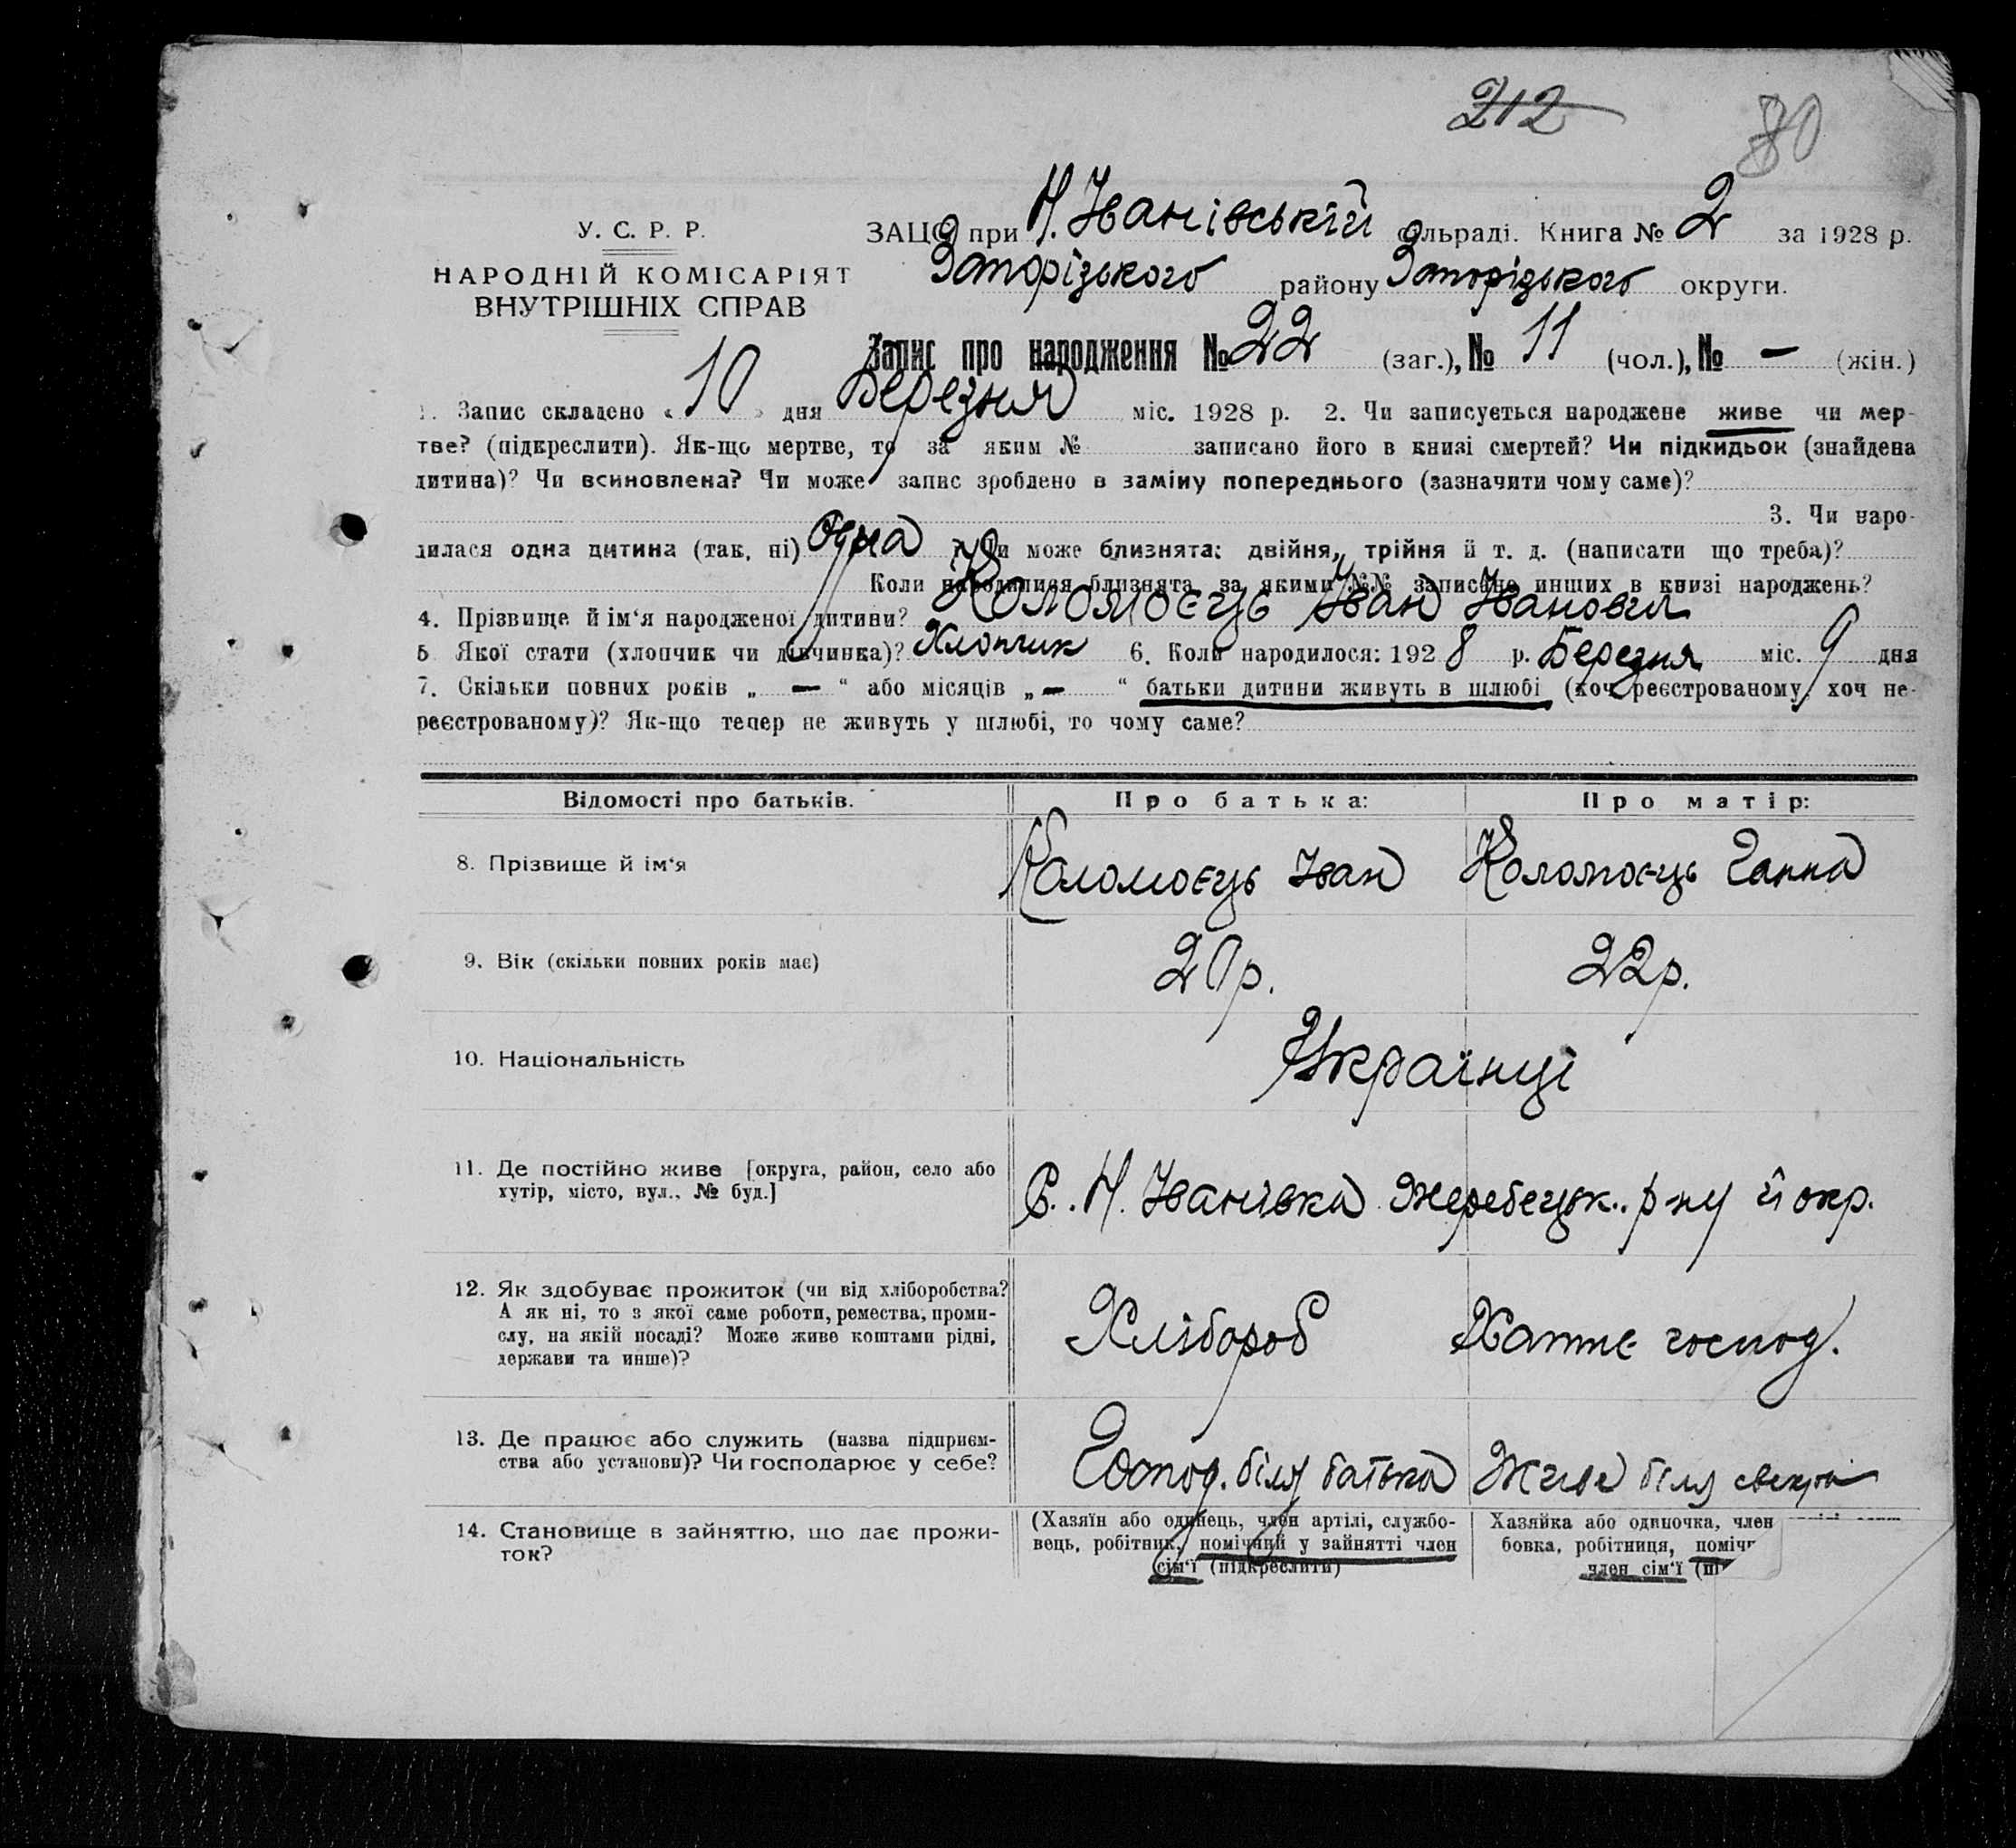 212
80
У. С. Р. Р.
НАРОДНІЙ КОМІСАРІЯТ
ВНУТРІШНІХ СПРАВ
ЗАЦС при Н. Іванівській сільраді. Книга № 2 за 1928 р.
Запорізького району Запорізького округи.
Запис про народження № 22 (заг.), № 11 (чол.), № — (жін.)
1. Запис складено « 10 » дня Березня міс. 1928 р. 2. Чи записується народжене живе чи мер-
тве? (підкреслити). Як-що мертве, то за яким № записано його в книзі смертей? Чи підкидьок (знайдена
дитина)? Чи всиновлена? Чи може запис зроблено в заміну попереднього (зазначити чому саме)?
3. Чи наро-
дилася одна дитина (так, ні) Одна Чи може близнята: двійня, трійня й т. д. (написати що треба)?
Коли народилися близнята, за якими №№ записано инших в книзі народжень?
4. Прізвище й ім‘я народженої дитини? Коломоєць Іван Іванович
5 Якої стати (хлопчик чи дівчинка)? Хлопчик 6. Коли народилося: 1928 р. Березня міс. 9 дня
7. Скільки повних років „ — “ або місяців „ — “ батьки дитини живуть в шлюбі (хоч реєстрованому, хоч не-
реєстрованому)? Як-що тепер не живуть у шлюбі, то чому саме?
Відомості про батьків. Про батька: Про матір:
8. Прізвище й ім‘я Коломоєць Іван Коломоєць Ганна
9. Вік (скільки повних років має) 20 р. 22 р.
10. Національність Українці
11. Де постійно живе [округа, район, село або
хутір, місто, вул., № буд.]
С. Н. Іванівка Жеребецьк. р-ну й окр.
12. Як здобуває прожиток (чи від хліборобства?
А як ні, то з якої саме роботи, ремества, проми-
слу, на якій посаді? Може живе коштами рідні,
держави та инше)?
Хлібороб Хатнє господ.
13. Де працює або служить (назва підприєм-
ства або установи)? Чи господарює у себе?
Господ. біля батька Живе біля
14. Становище в зайняттю, що дає прожи-
ток?
(Хазяїн або одинець, член артілі, службо-
вець, робітник, помічний у зайнятті член
сім‘ї (підкреслити)
Хазяйка або одиночка, член
бовка, робітниця, поміч
член сім‘ї (пі